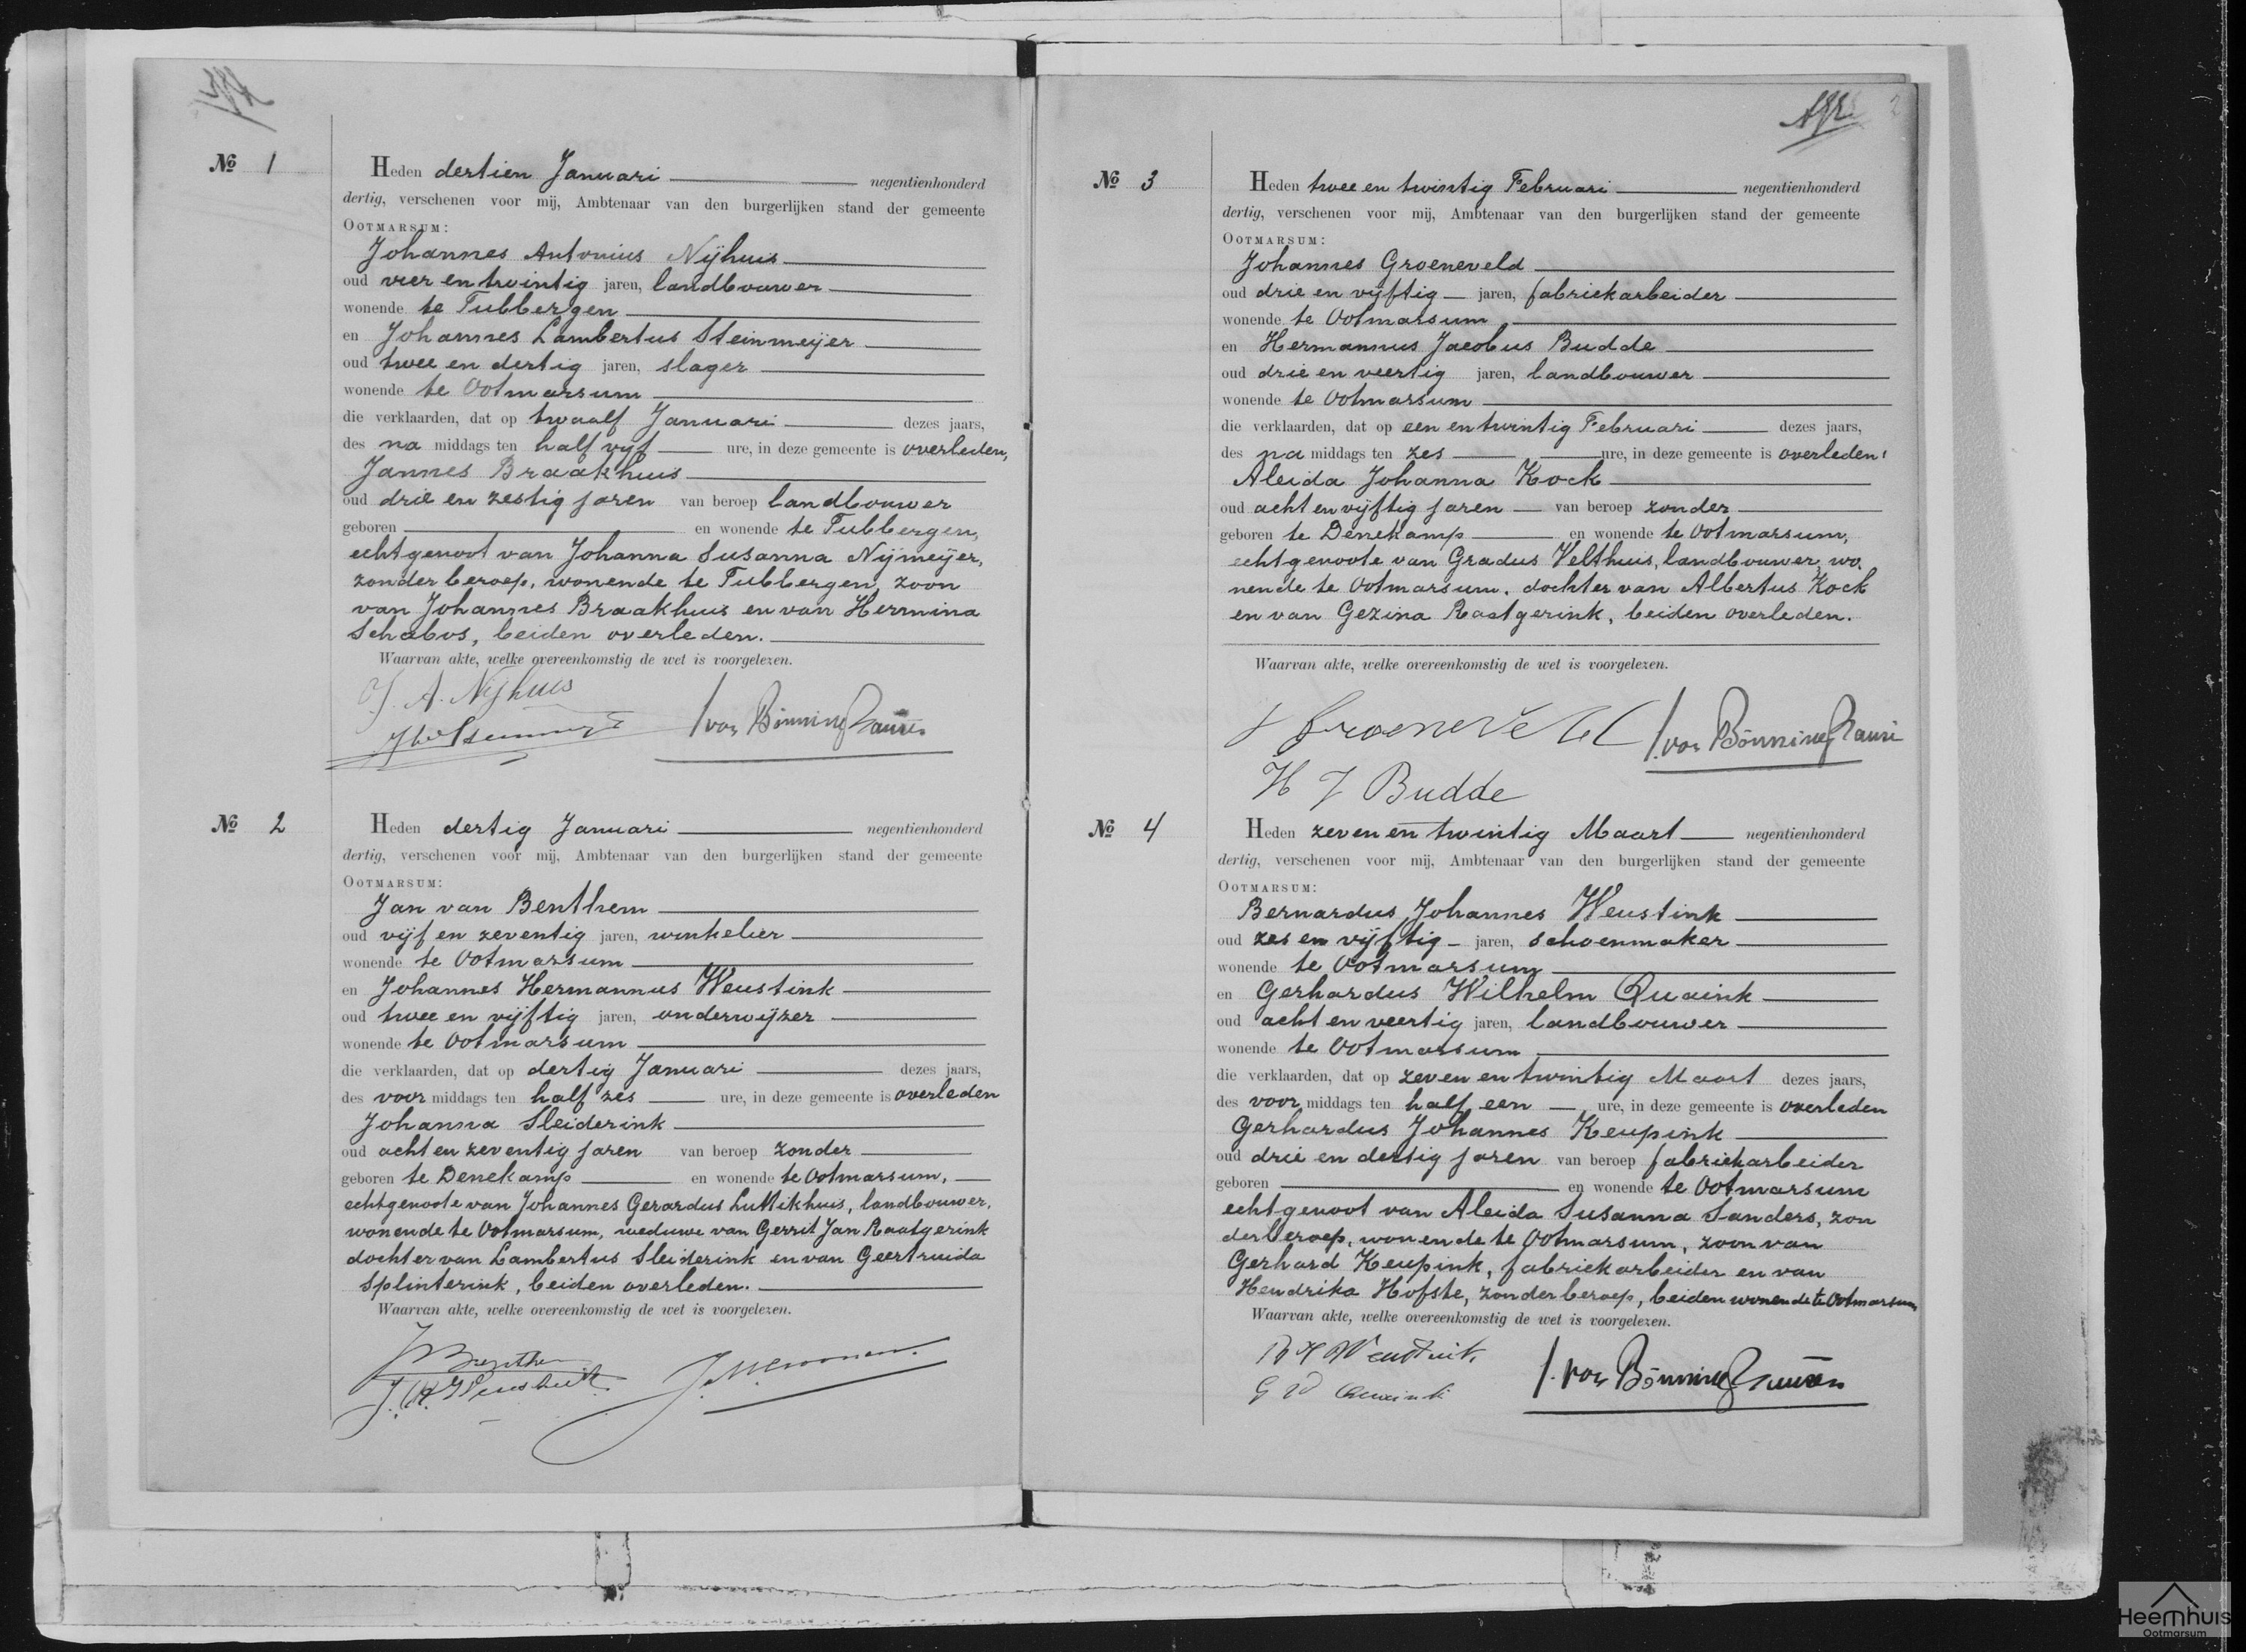 No 1
Heden dertien Januari negentienhonderd
dertig, verschenen voor mij, Ambtenaar van den burgerlijken stand der gemeente
OOTMARSUM:
Johannes Antonius Nijhuis
oud vier en twintig jaren, landbouwer
wonende te Tubbergen
en Johannes Lambertus Steinmeijer
oud twee en dertig jaren, slager
wonende te Ootmarsum
die verklaarden, dat op twaalf Januari dezes jaars,
des na middags ten half vijf ure, in deze gemeente is overleden,
Jannes Braakhuis
oud drie en zestig jaren van beroep landbouwer
geboren en wonende te Tubbergen,
echtgenoot van Johanna Susanna Nijmeijer,
zonder beroep, wonende te Tubbergen, zoon
van Johannes Braakhuis en van Hermina
Schabos, beiden overleden.
Waarvan akte, welke overeenkomstig de wet is voorgelezen.
J. A. Nijhuis
von Bönninghausen
No 2
Heden dertig Januari negentienhonderd
dertig, verschenen voor mij, Ambtenaar van den burgerlijken stand der gemeente
OOTMARSUM:
Jan van Benthem
oud vijf en zeventig jaren, winkelier
wonende te Ootmarsum
en Johannes Hermannus Weustink
oud twee en vijftig jaren, onderwijzer
wonende te Ootmarsum
die verklaarden, dat op dertig Januari dezes jaars,
des voor middags ten half zes ure, in deze gemeente is overleden
Johanna Sleiderink
oud acht en zeventig jaren van beroep zonder
geboren te Denekamp en wonende te Ootmarsum,
echtgenoote van Johannes Gerardus Luttikhuis, landbouwer,
wonende te Ootmarsum, weduwe van Gerrit Jan Raatgerink
dochter van Lambertus Sleiderink en van Geertruida
Splinterink, beiden overleden.
Waarvan akte, welke overeenkomstig de wet is voorgelezen.
J. H. Weustink
No 3
Heden twee en twintig Februari negentienhonderd
dertig, verschenen voor mij, Ambtenaar van den burgerlijken stand der gemeente
OOTMARSUM:
Johannes Groeneveld
oud drie en vijftig jaren, fabriekarbeider
wonende te Ootmarsum
en Hermannus Jacobus Budde
oud drie en veertig jaren, landbouwer
wonende te Ootmarsum
die verklaarden, dat op een en twintig Februari dezes jaars,
des na middags ten zes ure, in deze gemeente is overleden,
Aleida Johanna Kock
oud acht en vijftig jaren van beroep zonder
geboren te Denekamp en wonende te Ootmarsum,
echtgenoote van Gradus Velthuis, landbouwer, wo.
nende te Ootmarsum. dochter van Albertus Kock
en van Gezina Raatgerink, beiden overleden.
Waarvan akte, welke overeenkomstig de wet is voorgelezen.
J Groeneveld
von Bönninghausen
H J Budde
No 4
Heden zeven en twintig Maart negentienhonderd
dertig, verschenen voor mij, Ambtenaar van den burgerlijken stand der gemeente
OOTMARSUM:
Bernardus Johannes Weustink
oud zes en vijftig jaren, schoenmaker
wonende te Ootmarsum
en Gerhardus Wilhelm Quaink
oud acht en veertig jaren, landbouwer
wonende te Ootmarsum
die verklaarden, dat op zeven en twintig Maart dezes jaars,
des voor middags ten half een ure, in deze gemeente is overleden
Gerhardus Johannes Keupink
oud drie en dertig jaren van beroep fabriekarbeider
geboren en wonende te Ootmarsum
echtgenoot van Aleida Susanna Sanders, zon
der beroep, wonende te Ootmarsum, zoon van
Gerhard Keupink, fabriekarbeider en van
Hendrika Hofste, zonder beroep, beiden wonende te Ootmarsum
Waarvan akte, welke overeenkomstig de wet is voorgelezen.
von Bönninghausen
Heemhuis
Ootmarsum